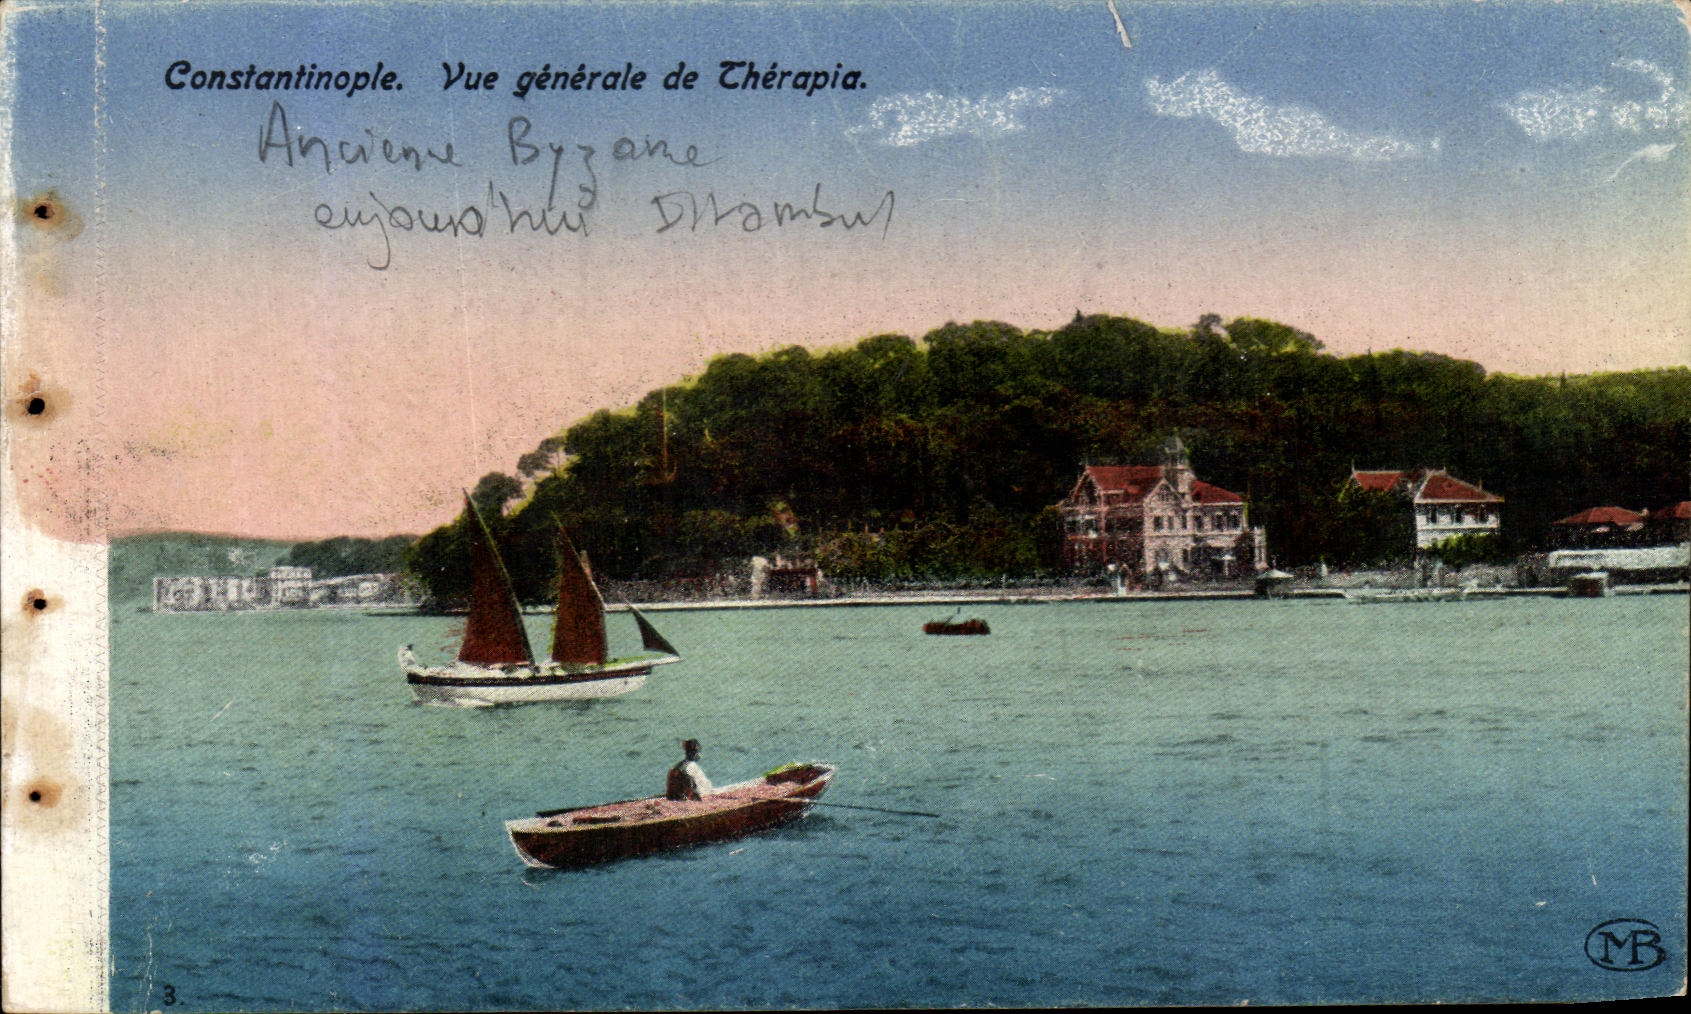 Constantinople. Vue générale de Thérapia.
Ancienne Byzance
aujourd'hui Istambul
3.
MB